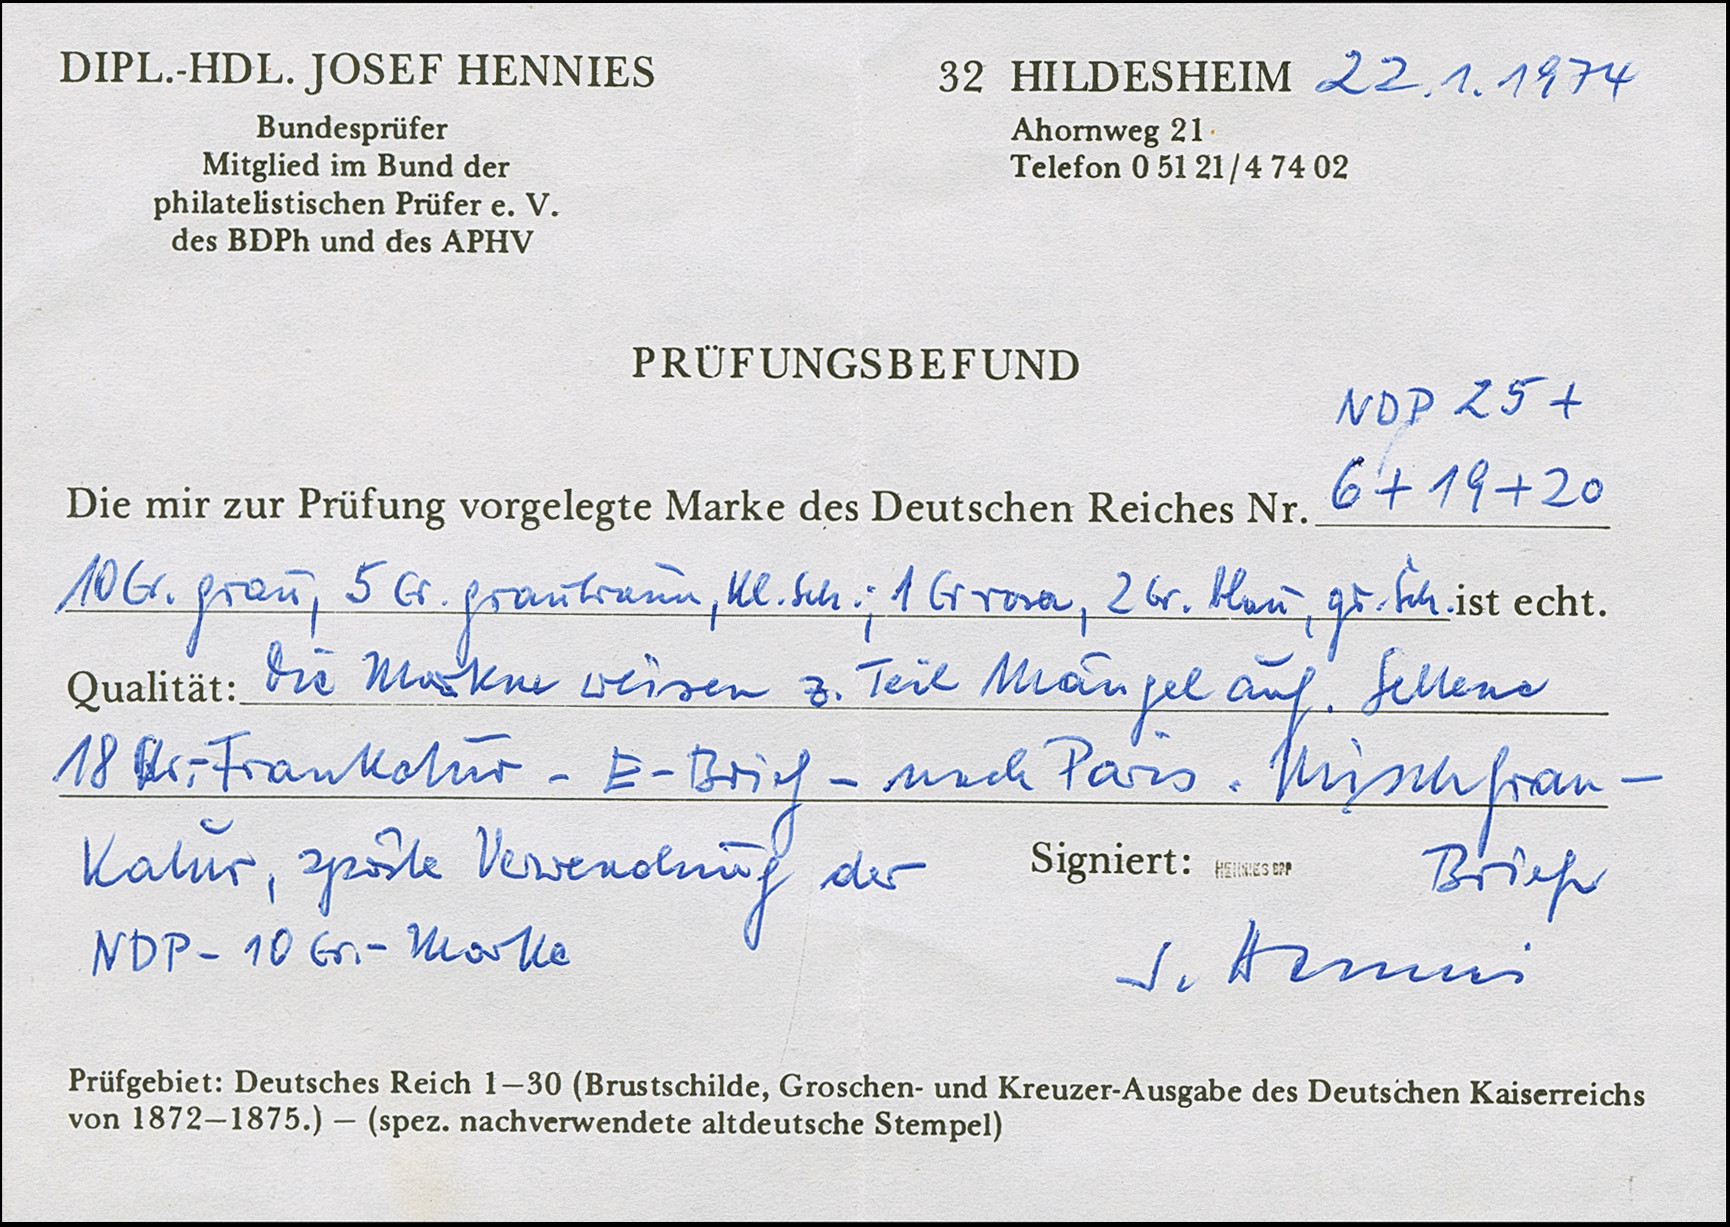 DIPL.-HDL. JOSEF HENNIES
Bundesprüfer
Mitglied im Bund der
philatelistischen Prüfer e. V.
des BDPh und des APHV
32 HILDESHEIM 22.1.1974
Ahornweg 21
Telefon 0 51 21/4 74 02
PRÜFUNGSBEFUND
NDP 25+
Die mir zur Prüfung vorgelegte Marke des Deutschen Reiches Nr. 6+19+20
10 Gr. grau, 5 Gr. graubraun, kl. Sch.; 1 Gr rosa, 2 Gr. blau, gr. Sch. ist echt.
Qualität: Die Marken weisen z. Teil Mängel auf. Seltene
18 Gr.-Frankatur - E-Brief - nach Paris. Mischfran-
katur, späte Verwendung der
Signiert: HENNIES BPP Brief
NDP-10 Gr.-Marke
J. Hennies
Prüfgebiet: Deutsches Reich 1–30 (Brustschilde, Groschen- und Kreuzer-Ausgabe des Deutschen Kaiserreichs
von 1872–1875.) – (spez. nachverwendete altdeutsche Stempel)